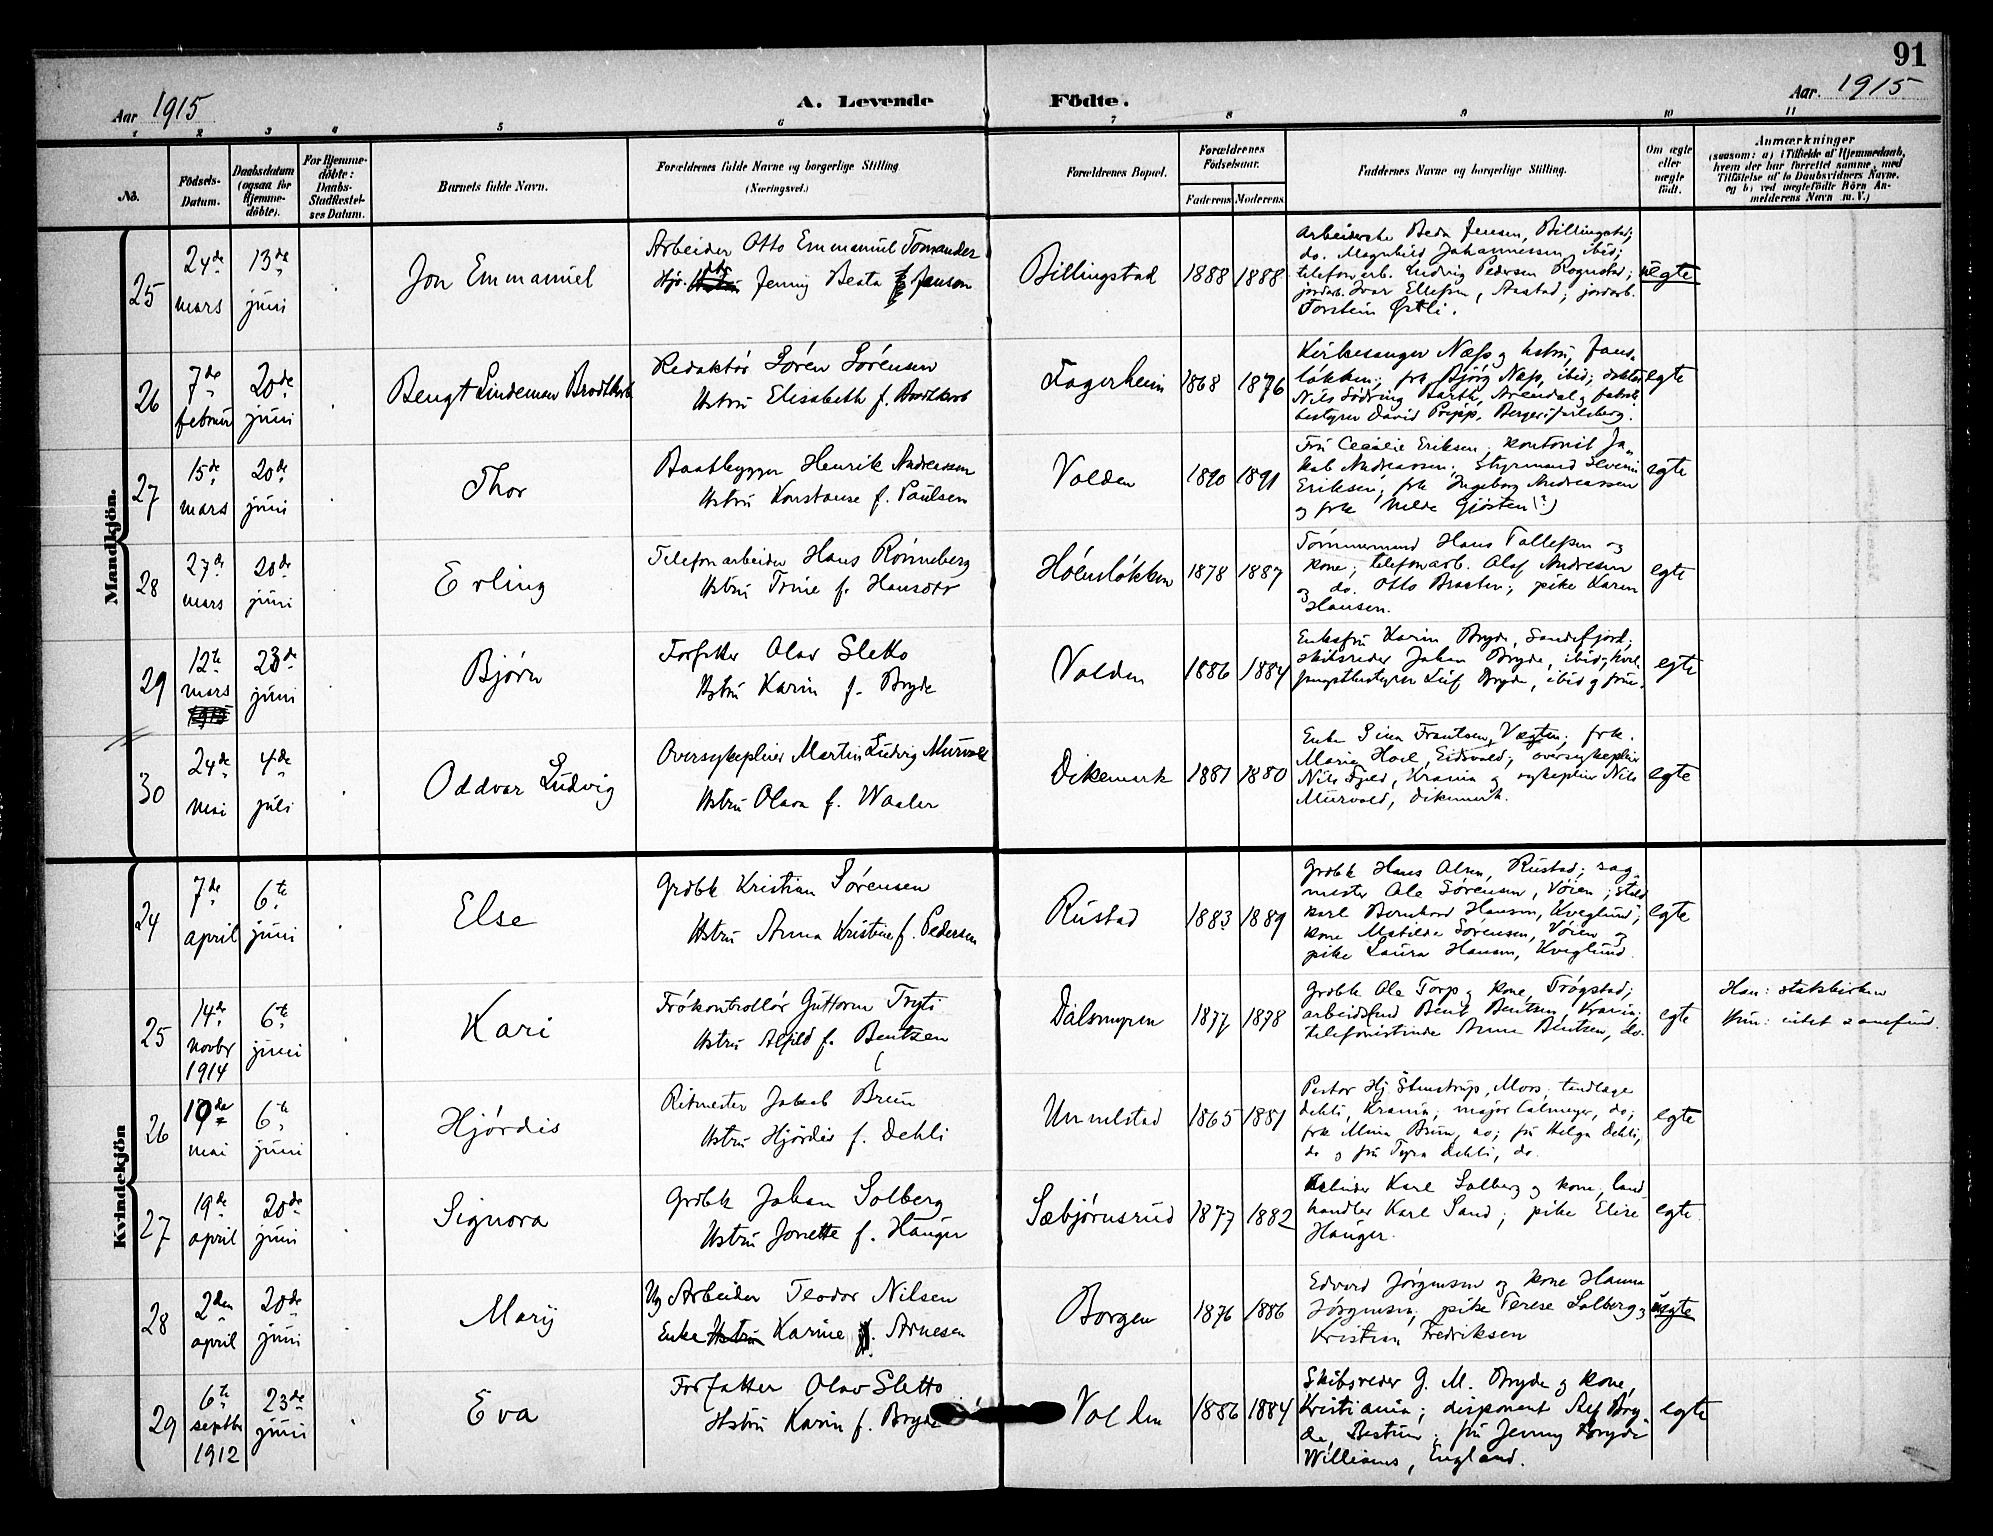 91
Aar 1915
A. Levende Födte.
Aar. 1915
1 2 3 4 5 6 7 8 9 10 11
No.
Födsels-Datum.
Daabsdatum (ogsaa for Hjemme-döbte).
For Hjemme-döbte: Daabs-Stadfæstel-ses Datum.
Barnets fulde Navn.
Forældrenes fulde Navne og borgerlige Stilling
(Næringsvei.)
Forældrenes Bopæl.
Forældrenes Födselsaar.
Faderens Moderens
Faddernes Navne og borgerlige Stilling.
Om ægte eller uægte födt.
Anmærkninger
(saasom: a) i Tilfælde af Hjemmedaab,
hvem der har forrettet samme, med
Tilföielse af to Daabsvidners Navne,
og b) ved uægtefödte Börn An-
melderens Navn m. V.)
Mandkjön.
25
24de mars
13de juni
Jon Emmanuel
Arbeider Otto Emmanuel Tornander
Jenny Beata Janson
Billingstad
1888 1888
Arbeiderske Beda Jensen, Billingstad;
do. Magnhild Johannessen, ibid;
telefonarb. Ludvig Pedersen Rognstad;
jordarb. Ivar Ellefsen, Aastad; jordarb.
Torstein Østli.
uegte
26
7de februar
20de juni
Bengt Lindeman Brodtkorb
Redaktør Søren Sørensen
Hstru Elisabeth f. Brodtkorb
Fagerheim
1868 1876
Kirkesanger Næss og hstru,
løkken; frk Bjørg Næss, ibid; doktor
Nils Södring Barth, Arendal og
bestyrer David Pripp, Berger i Jarlsberg.
egte
27
15de mars
20de juni
Thor
Baatbygger Henrik Andreassen
Hstru Konstanse f. Paulsen
Volden
1890 1891
Fru Cecilie Eriksen, kontorist Ja-
kob Andreassen; Styrmand Severin
Eriksen; frk Ingeborg Andreassen
og frk Hilda Gjøsten (?)
egte
28
27de mars
20de juni
Erling
Telefonarbeider Hans Rønneberg
Hstru Trine f. Hansdtr
Høensløkken
1878 1887
Tømmermand Hans Tollefsen og
kone; telefonarb. Olaf Andresen
og do. Otto Braaten; pike Karen
Hansen.
egte
29
12te mars
23de juni
Bjørn
Forfatter Olav Sletto
Hstru Karin f. Bryde
Volden
1886 1884
Enkefru Karin Bryde, Sandefjord;
skibsreder Johan Bryde, ibid; hval-
fangstbestyrer Leif Bryde, ibid og frue.
egte
30
24de mai
4de juli
Oddvar Ludvig
Oversykepleier Martin Ludvig Murvold
Hstru Olava f. Waaler
Dikemark
1881 1880
Enke Sina Frantsen, frk.
Marie Hoel, Eidsvold; oversykepleier
Nils Krania og sykepleier Nils
Murvold, Dikemark.
egte
Kvindekjön
24
7de april
6te juni
Else
Grdbk Kristian Sørensen
Hstru Anna Kristine f. Pedersen
Rustad
1883 1889
Grdbk Hans Olsen, Rustad; sag-
mester Ole Sørensen, Vøien; stald
karl Bernhard Hansen, Kveglund;
kone Matilde Sørensen, Vøien og
pike Laura Hansen, Kveglund.
egte
25
14de novbr 1914
6te juni
Kari
Frøkontrollør Guttorm Tryti
Hstru Alfild f. Bentzen
Dalsmyren
1877 1878
Grdbk Ole Torp og kone, Trøgstad;
arbeidsfmd Bent Bentzen, Krania;
telefonistinde Anna Bentzen, do.
egte
Han: statskirken
Hun: intet samfund.
26
10de mai
6te juni
Hjørdis
Ritmester Jakob Bruun
Hstru Hjørdis f. Dehli
Unnelstad
1865 1881
Pastor Hj Stenstrup, Moss, tandlæge
Dehli, Krania; major Calmeyer, do;
frk Mina Bruun, do; fru Helga Dehli,
do og fru Tyra Dehli, do.
egte
27
19de april
20de juni
Signora
Grdbk Johan Solberg
Hstru Jonette f. Hauger
Sæbjørnsrud
1877 1882
Arbeider Karl Solberg og kone, land
handler Karl Sand; pike Elise
Hauger.
egte
28
2den april
20de juni
Mary
Ug Arbeider Teodor Nilsen
Enke Hstru Karine f. Arnesen
Borgen
1876 1886
Edvard Jørgensen og kone Hanna
Jørgensen; pike Terese Solberg og
Kristian Fredriksen
uegte
29
6te septbr 1912
23de juni
Eva
Forfatter Olav Sletto
Hstru Karin f. Bryde
Volden
1886 1884
Skibsreder G. M. Bryde og kone,
Kristiania; disponent Alf Bry-
de, Bestum; fru Jenny Bryde
Williams, England.
egte